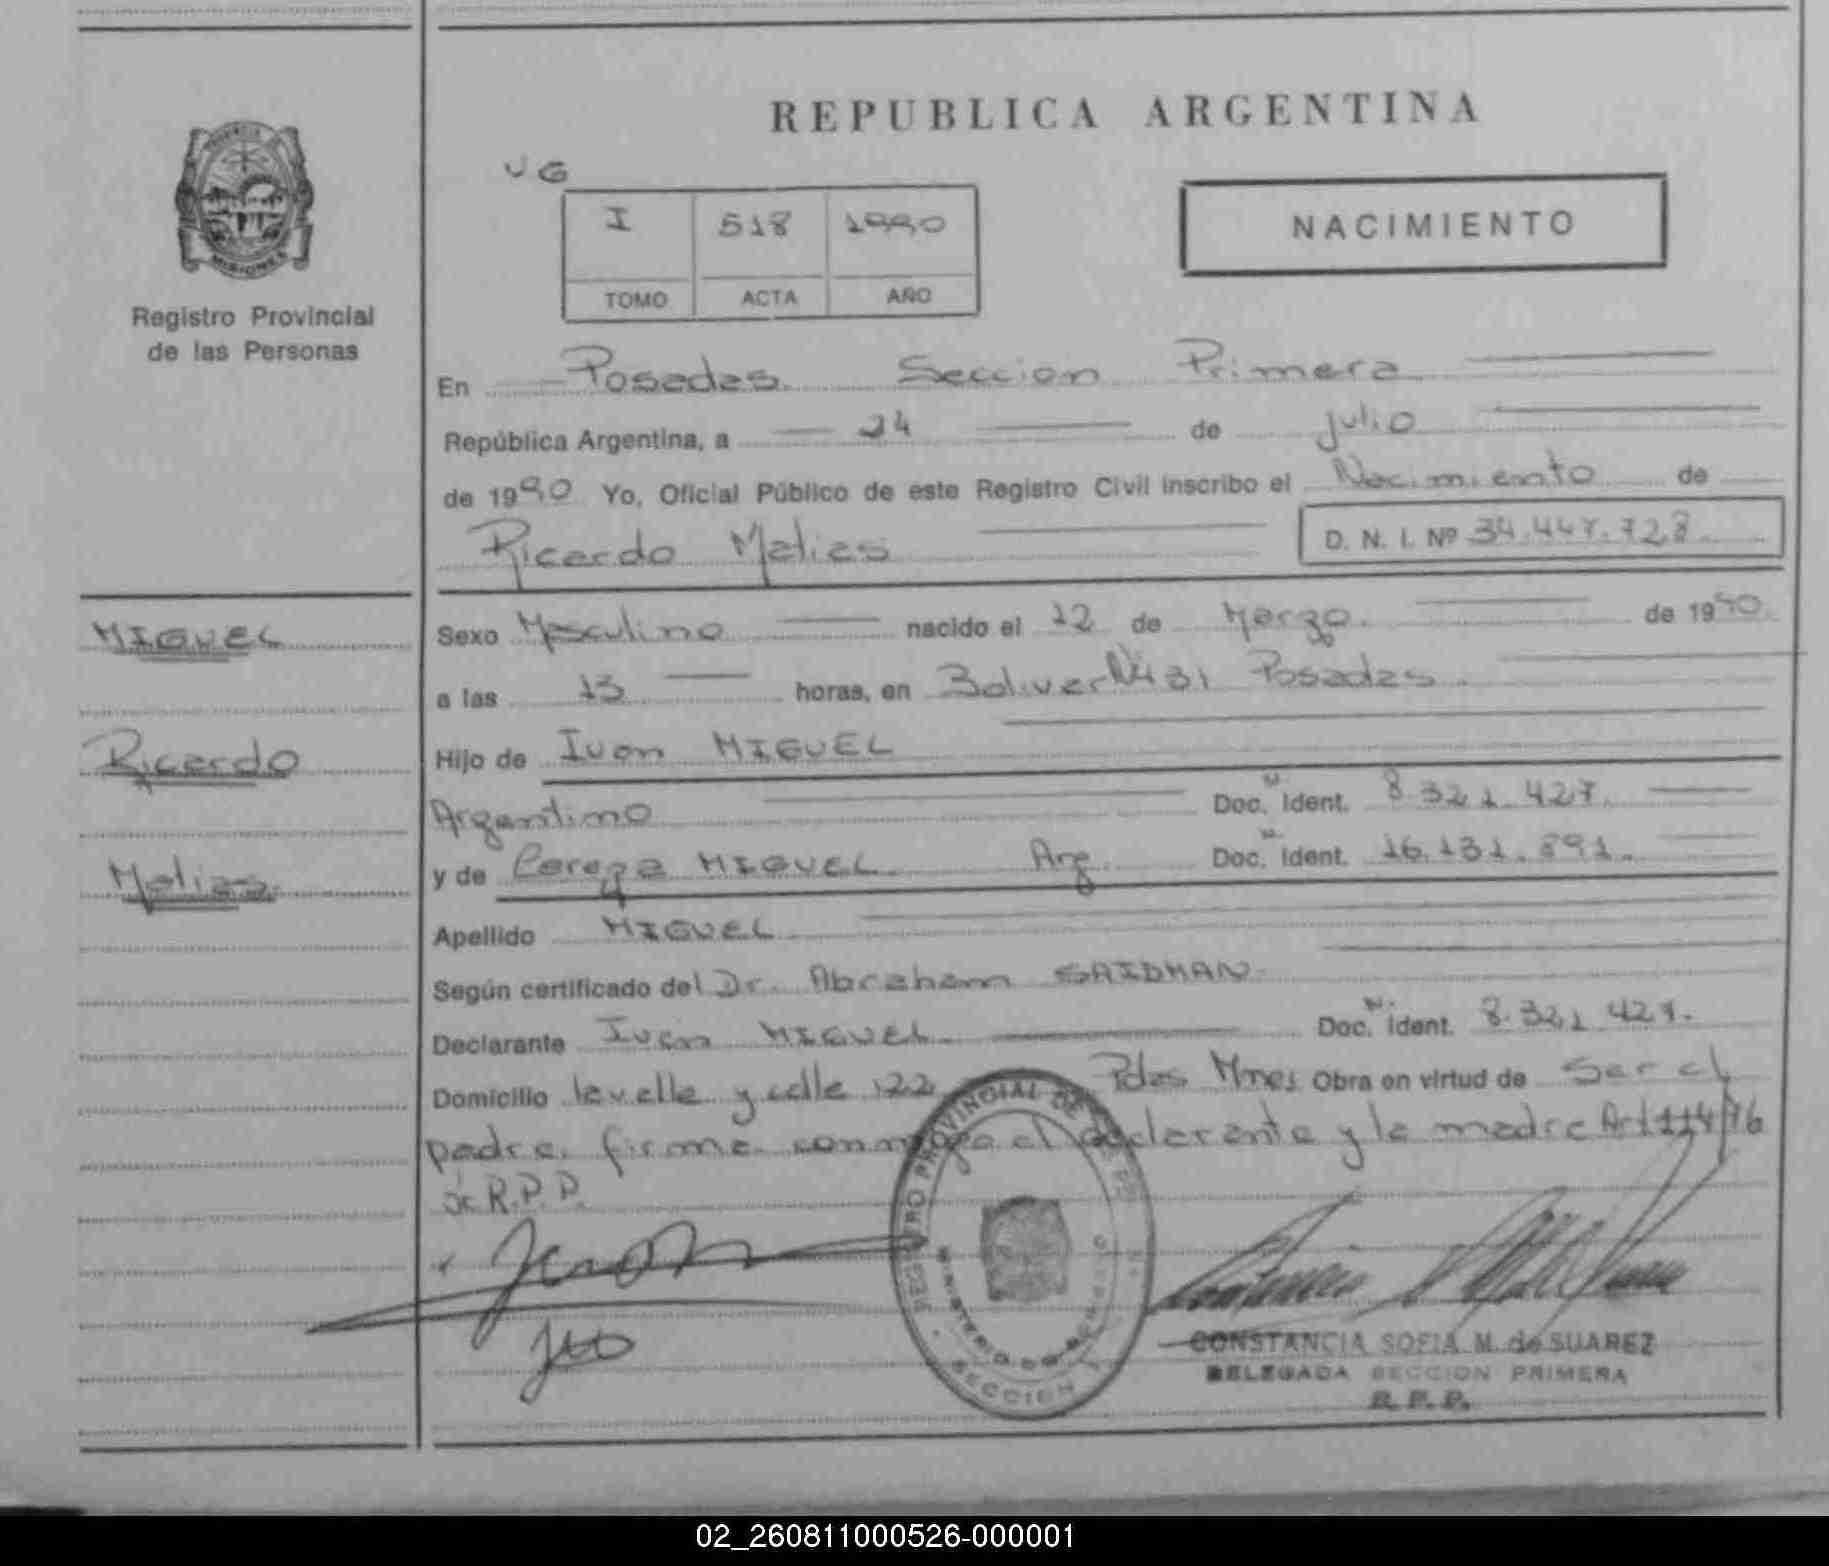 REPUBLICA ARGENTINA
PROVINCIA
MISIONES
Registro Provincial
de las Personas
I 518 1990
TOMO ACTA AÑO
NACIMIENTO
En Posadas Seccion Primera
República Argentina, a 24 de julio
de 1990 Yo, Oficial Público de este Registro Civil inscribo el Nacimiento de
Ricardo Matias D. N. I. Nº 34.447.728
MIGUEL
Sexo Masculino nacido el 12 de Marzo de 1990
a las 13 horas, en Bolivar Nº 431 Posadas
Ricardo
Hijo de Ivan MIGUEL
Argentino Doc. Ident. 8.321.427.
Matias
y de MIGUEL Arg. Doc. Ident. 16.131.891.
Apellido MIGUEL
Según certificado del Dr. Abraham SAIDMAN
Declarante Ivan MIGUEL Doc. Ident. 8.321.427.
Domicilio lavalle y calle 122 Pdas Mnes Obra en virtud de ser el
padre. firma conmigo el declarante y la madre Art 114/76
R.P.P.
REGISTRO PROVINCIAL DE LAS
SECCION 1
CONSTANCIA SOFIA M. de SUAREZ
DELEGADA SECCION PRIMERA
R. P. P.
02_260811000526-000001